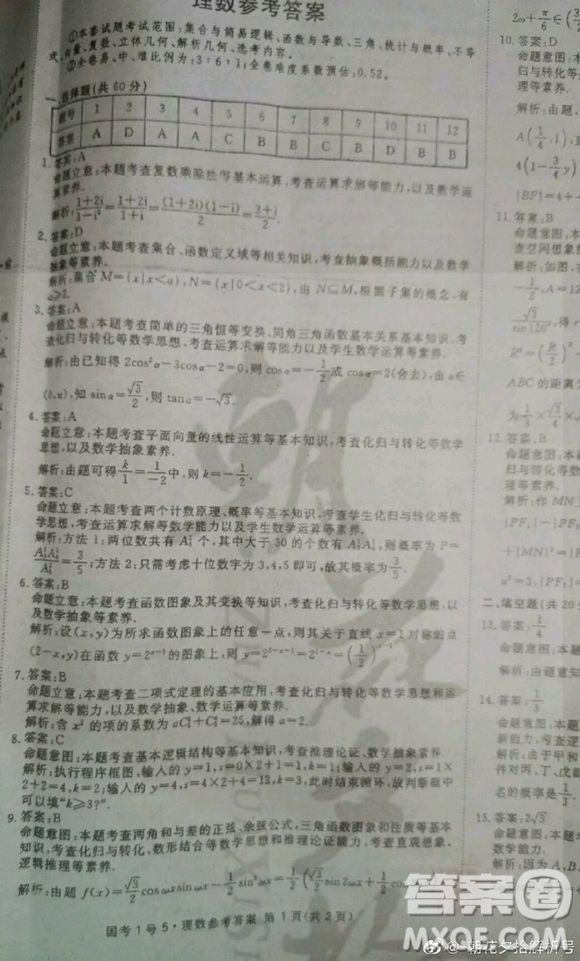 理数参考答案
①本套试题考试范围:集合与简易逻辑、函数与导数、三角、统计与概率、不等
式、向量、复数、立体几何、解析几何、选考内容。
②全卷易、中、难比例为:3:6:1;全卷难度系数预估:0.52。
一、选择题(共60分)
题号 1 2 3 4 5 6 7 8 9 10 11 12
答案 A D A A C B B C B D B B
1. 答案:A
命题立意:本题考查复数乘除法等基本运算,考查运算求解等能力,以及数学运
算素养.
解析:(1+2i)/(1-i³)=(1+2i)/(1+i)=(1+2i)(1-i)/2=(3+i)/2.
2. 答案:D
命题立意:本题考查集合、函数定义域等相关知识,考查抽象概括能力以及数学
抽象等素养.
解析:集合M={x|x<a},N={x|0<x<2},由N⊆M,根据子集的概念,有
a≥2.
3. 答案:A
命题立意:本题考查简单的三角恒等变换、同角三角函数基本关系基本知识,考
查化归与转化等数学思想,考查运算求解等能力以及学生数学运算等素养.
解析:由已知得2cos²α-3cosα-2=0,则cosα=-1/2或cosα=2(舍去),由α∈
(0,π),知sinα=√3/2,则tanα=-√3.
4. 答案:A
命题立意:本题考查平面向量的线性运算等基本知识,考查化归与转化等数学
思想,以及数学抽象素养.
解析:由题可得k/1=1/-2中,则k=-1/2.
5. 答案:C
命题立意:本题考查两个计数原理、概率等基本知识,考查学生化归与转化等数
学思想,考查运算求解等数学能力以及学生数学运算等素养.
解析:方法1:两位数共有A 个,其中大于30的个数有A A ,则概率为P=
=3/5;方法2:只需考虑十位数字为3,4,5即可,故其概率为3/5.
6. 答案:B
命题立意:本题考查函数图象及其变换等知识,考查化归与转化等数学思想,以
及数学抽象等素养.
解析:设(x,y)为所求函数图象上的任意一点,则其关于直线x=1对称的点
(2-x,y)在函数y=2ˣ⁻¹的图象上,则y=2²⁻ˣ⁻¹=2¹⁻ˣ=(1/2)ˣ⁻¹.
7. 答案:B
命题立意:本题考查二项式定理的基本应用,考查化归与转化等数学思想和运
算求解等能力,以及数学运算等素养.
解析:含x²的项的系数为 =25,解得a=2.
8. 答案:C
命题意图:本题考查基本逻辑结构等基本知识,考查推理论证、数学抽象素养.
解析:执行程序框图:输入的y=1,s=0×2+1=1,k=1;输入的y=2,s=1×
2+2=4,k=2;输入的y=4,s=4×2+4=12,k=3,此时结束循环,故判断框中
可以填“k≥3?”.
9. 答案:B
命题意图:本题考查两角和与差的正弦、余弦公式,三角函数图象和性质等基本
知识,考查化归与转化、数形结合等数学思想和推理论证能力,考查直观想象、
逻辑推理等素养.
解析:由题f(x)=√3/2 cosωx sinωx-1/2 sin²ωx=1/2(√3/2 sin2ωx+1/2 cos
国考1号5·理数参考答案 第1页(共2页)
2ω+π/6∈
10. 答案:D
命题意图:本
归与转化等
理等素养.
解析:由题,
A(1/4,1),
4(1-3/4y)
|BF|=4+
11. 答案:B
命题意图:本
查空间想象
解析:如图,在
-1/2,A=12
sin120°,得r
ABC的距离为
12. 答案:B
命题意图:本
归与转化等数
解析:作MN
|PF₁|-|PF₂|
+|MN|²=
a²=3,|PF₁|
二、填空题(共20分
13. 答案:1/4
命题意图:本
解析:由题意知
14. 答案:1/3
命题意图:本
新能力.
解析:由于甲和
伴对丙、丁、戊
名的概率是1/3.
15. 答案:2√3
命题意图:本
数学能力.
解析:
答案圈
朝花夕拾
@-朝花夕拾解析号